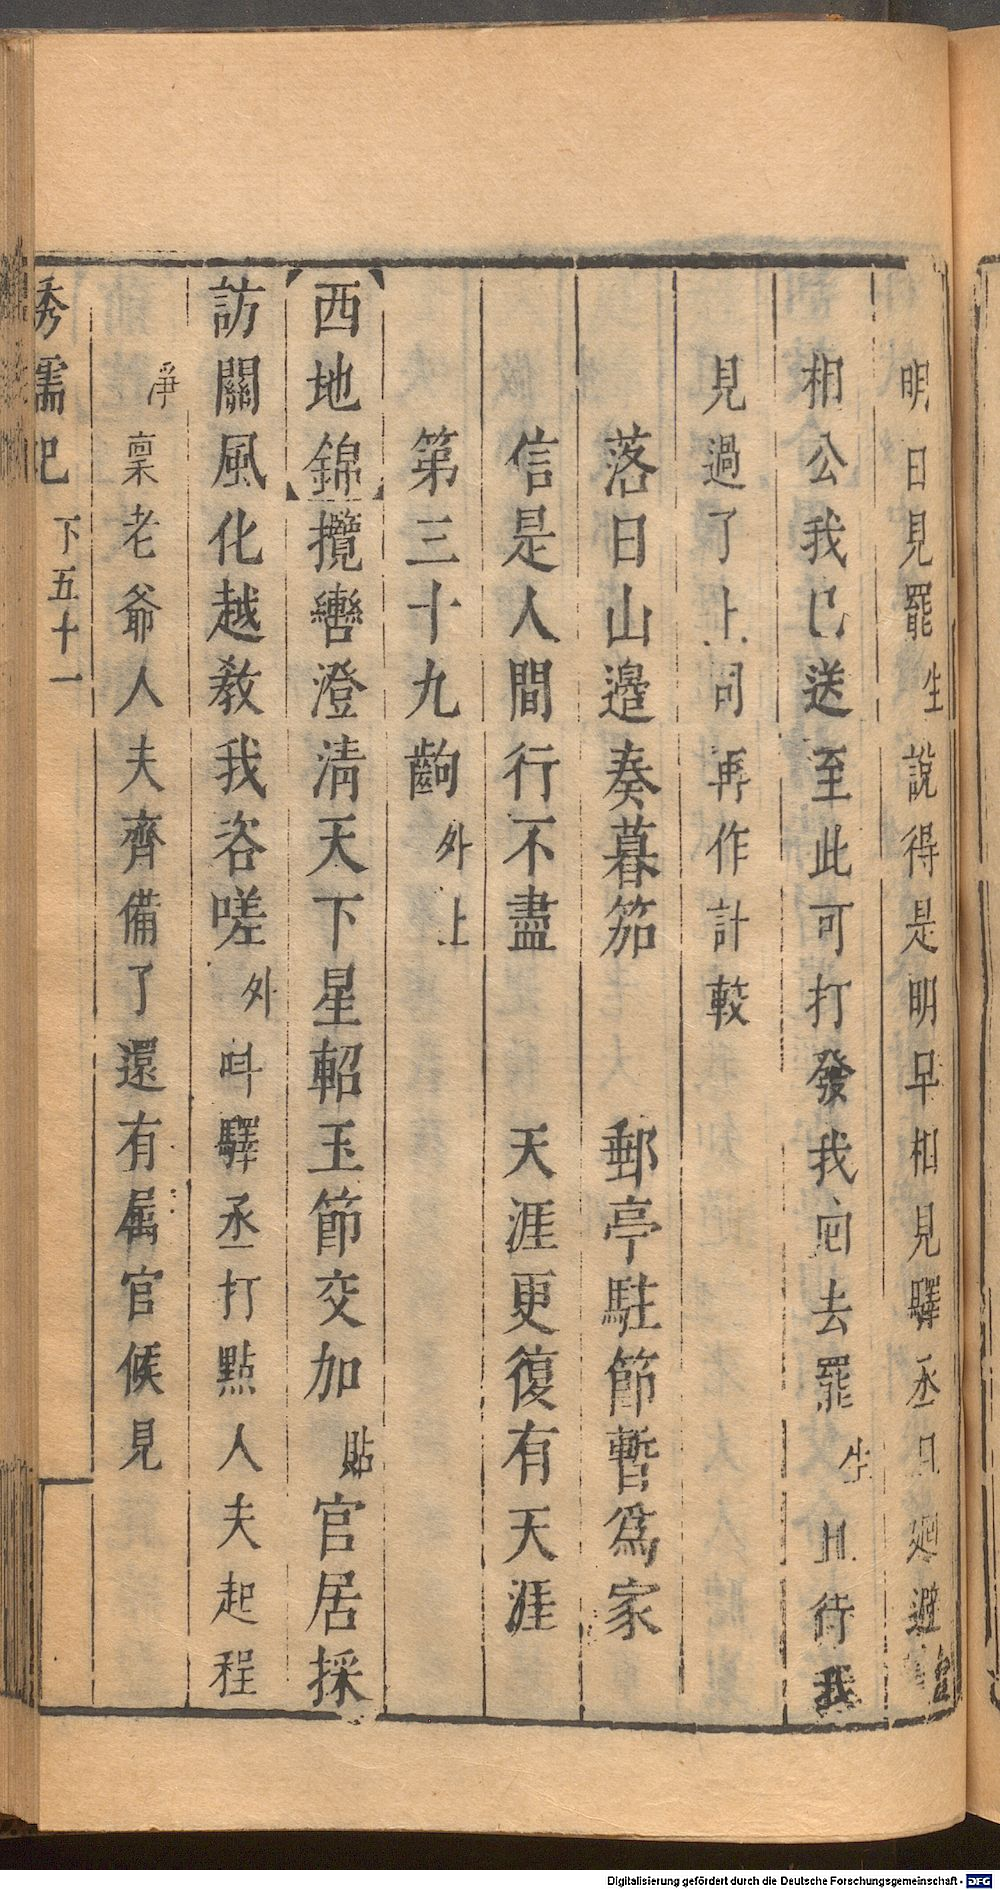 明日見罷生說得是明早相見驛丞且廻避
相公我已送至此可打發我囘去罷生且待我
見過了上司再作計較
落日山邉奏暮笳 郵亭駐節暫爲家
信是人間行不盡 天涯更復有天涯
第三十九齣外上
【西地錦】攬轡澄清天下星軺玉節交加貼官居採
訪關風化越教我咨嗟外呌驛丞打點人夫起程
淨禀老爺人夫齊備了還有属官候見
秀襦记 下五十一
Digitalisierung gefördert durch die Deutsche Forschungsgemeinschaft - DFG